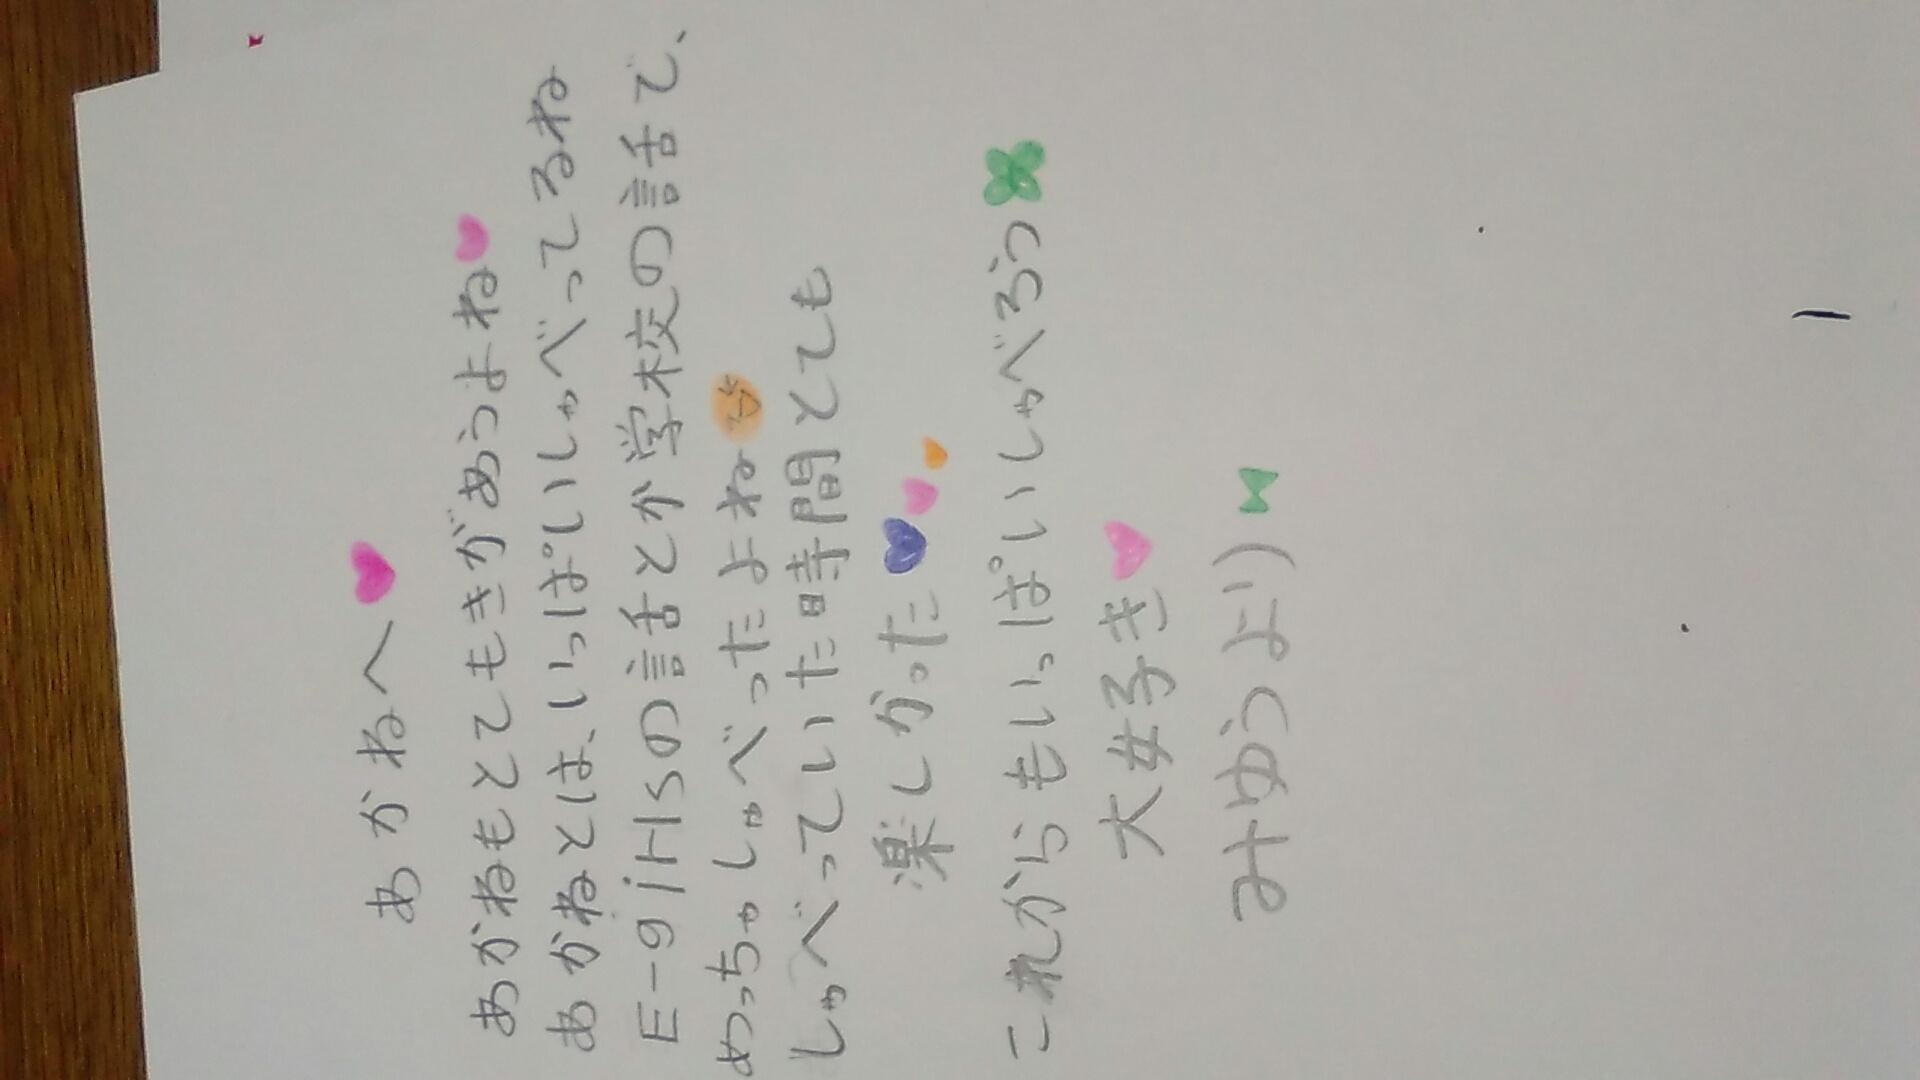 あかねへ
あかねもとてもきがあうよね
あかねとは、いっぱいしゃべってるね
E-girlsの話とか学校の話で、
めっちゃしゃべったよね
しゃべっていた時間とても
楽しかった
これからもいっぱいしゃべろう
大好き
みゆうより